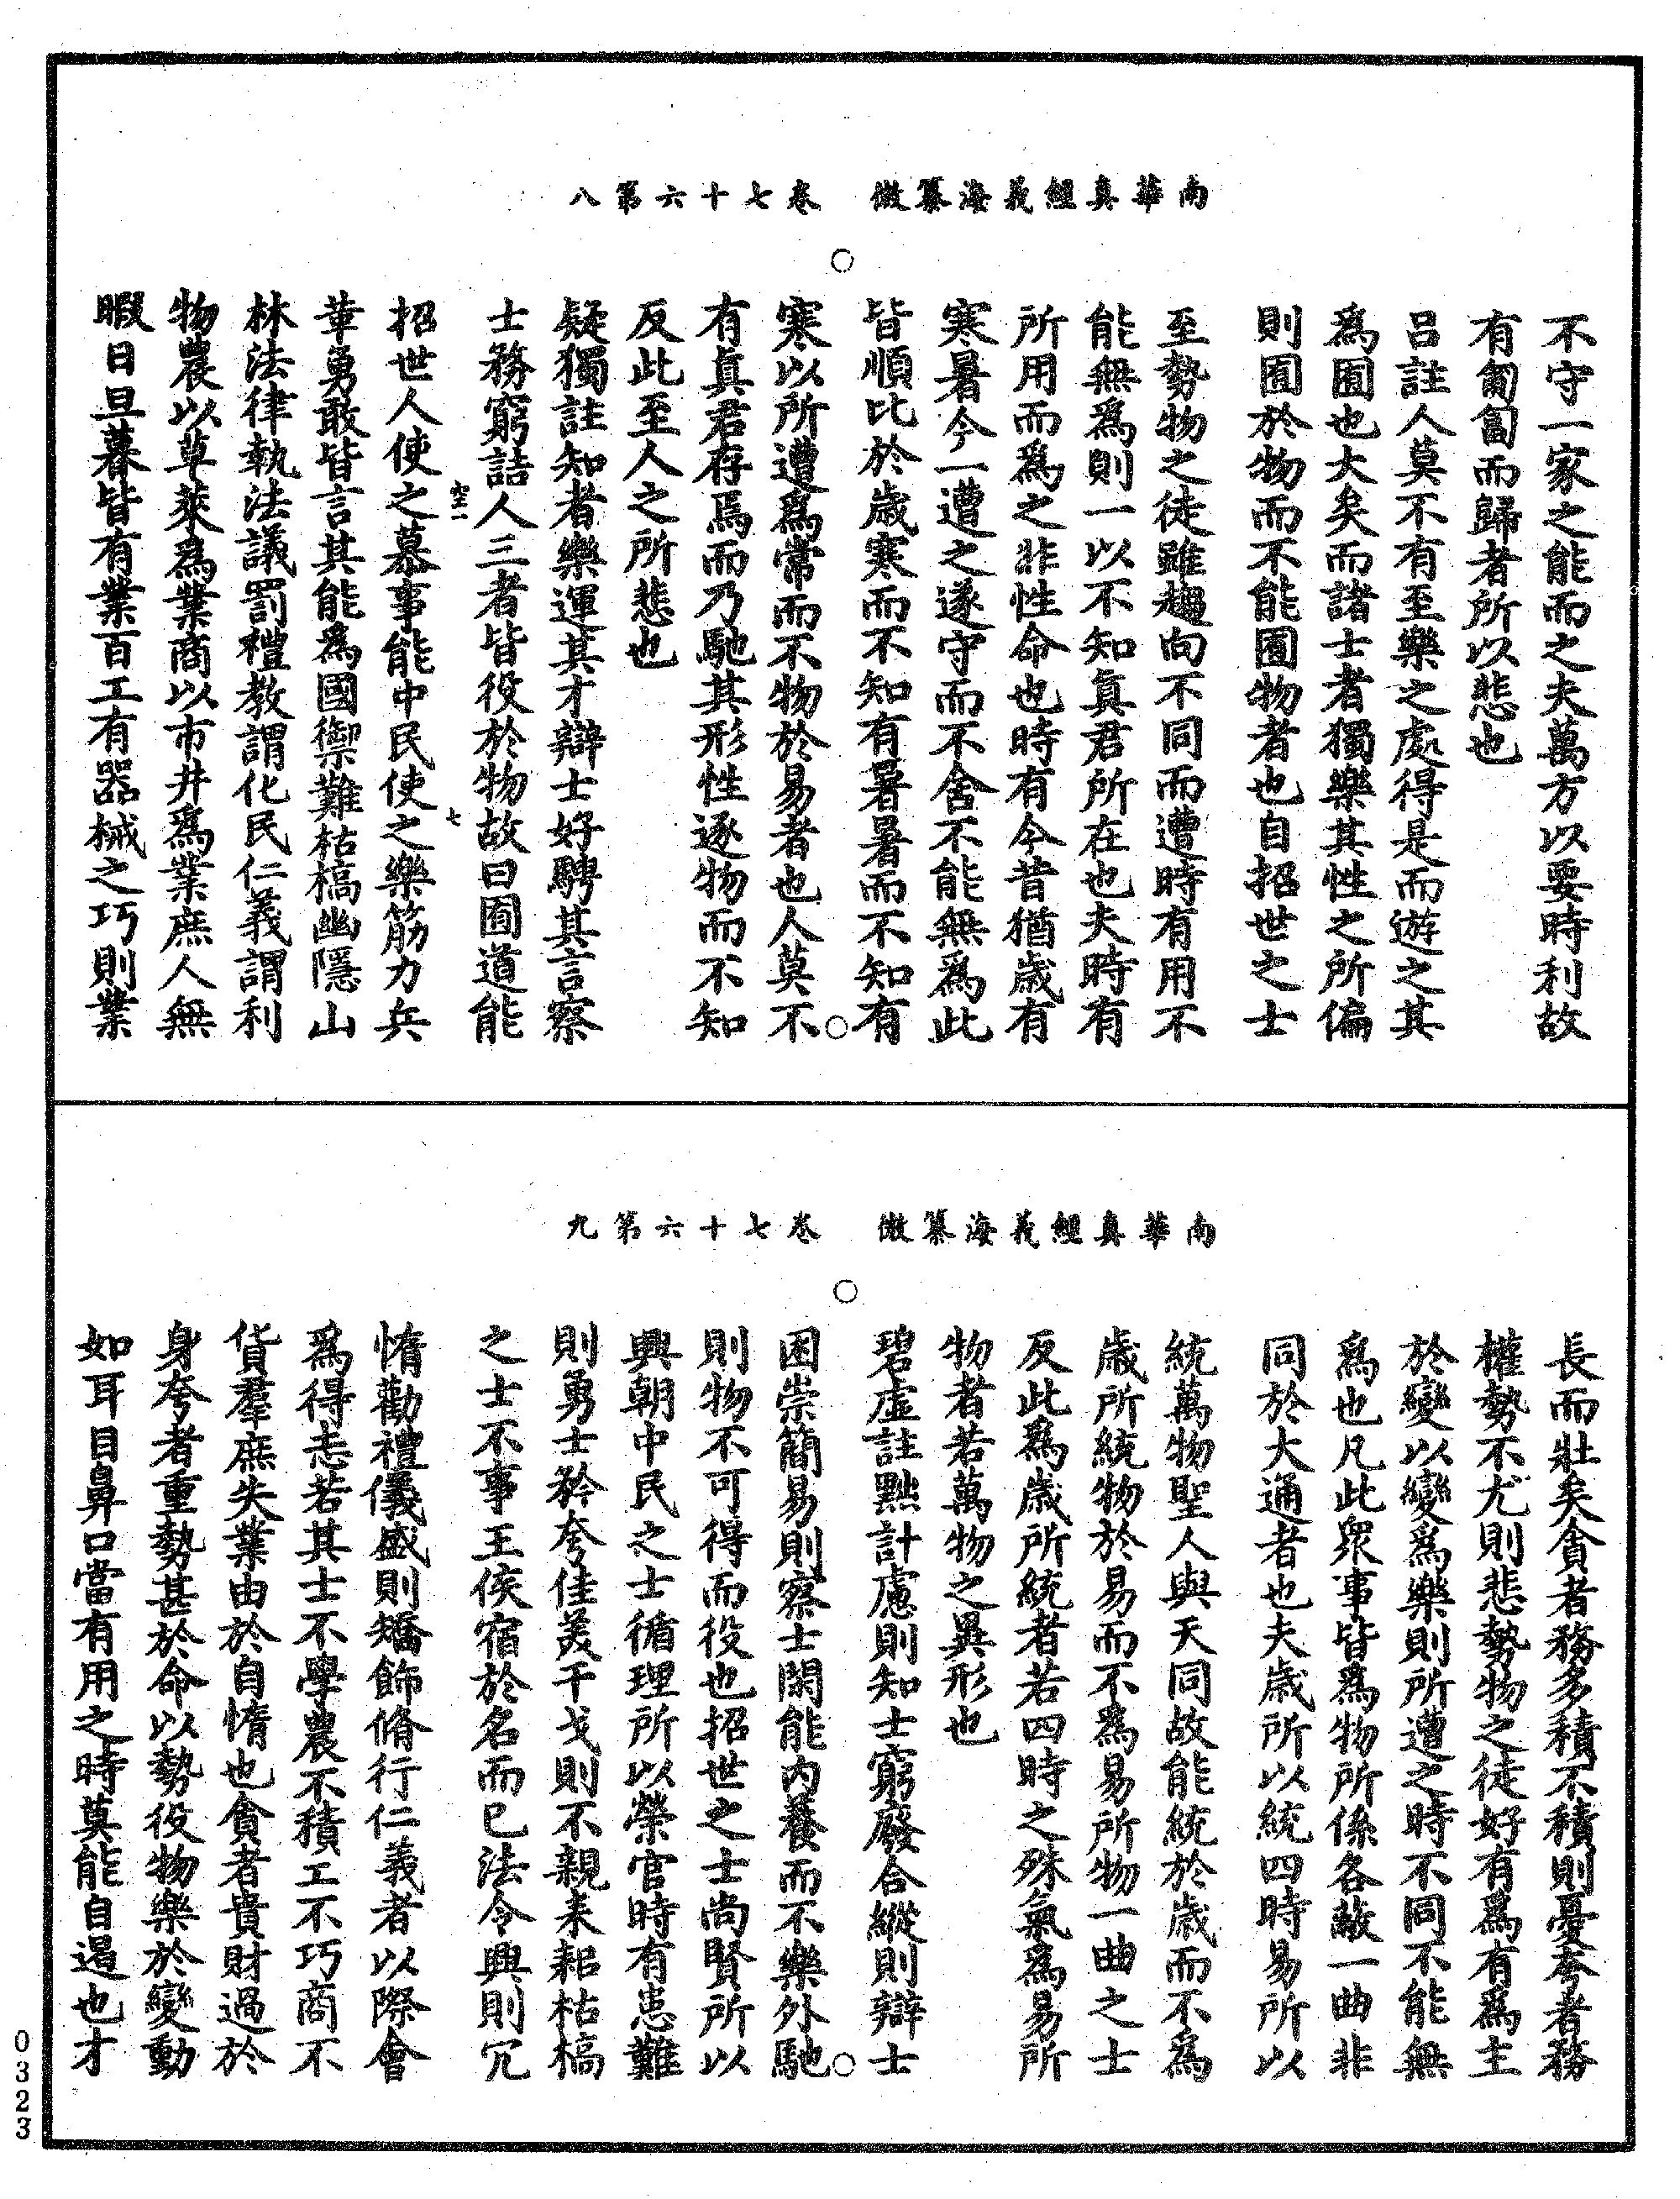 南華真經義海纂微　卷七十六第八
不守一家之能而之夫萬方以要時利故
有匍匐而歸者所以悲也
呂註人莫不有至樂之處得是而遊之其
爲囿也大矣而諸士者獨樂其性之所偏
則囿於物而不能囿物者也自招世之士
至勢物之徒雖趨向不同而遭時有用不
能無爲則一以不知真君所在也夫時有
所用而爲之非性命也時有今昔猶歲有
寒暑今一遭之遂守而不舍不能無爲此
皆順比於歲寒而不知有暑暑而不知有
寒以所遭爲常而不物於易者也人莫不
有真君存焉而乃馳其形性逐物而不知
反此至人之所悲也
疑獨註知者樂運其才辯士好騁其言察
士務窮詰人三者皆役於物故曰囿道能
空二　七
招世人使之慕事能中民使之樂筋力兵
革勇敢皆言其能爲國禦難枯槁幽隱山
林法律執法議罰禮教謂化民仁義謂利
物農以草萊爲業商以市井爲業庶人無
暇日旦暮皆有業百工有器械之巧則業
南華真經義海纂微　卷七十六第九
長而壯矣貪者務多積不積則憂夸者務
權勢不尤則悲勢物之徒好有爲有爲主
於變以變爲樂則所遭之時不同不能無
爲也凡此衆事皆爲物所係各蔽一曲非
同於大通者也夫歲所以統四時易所以
統萬物聖人與天同故能統於歲而不爲
歲所統物於易而不爲易所物一曲之士
反此爲歲所統者若四時之殊氣爲易所
物者若萬物之異形也
碧虛註黜計慮則知士窮廢合縱則辯士
困崇簡易則察士閑能內養而不樂外馳
則物不可得而役也招世之士尚賢所以
興朝中民之士循理所以榮官時有患難
則勇士矜夸佳羡干戈則不親耒耜枯槁
之士不事王侯宿於名而已法令興則冗
惰勸禮儀盛則矯飾脩行仁義者以際會
爲得志若其士不學農不積工不巧商不
貨羣庶失業由於自惰也貪者貴財過於
身夸者重勢甚於命以勢役物樂於變動
如耳目鼻口當有用之時莫能自遏也才
0323